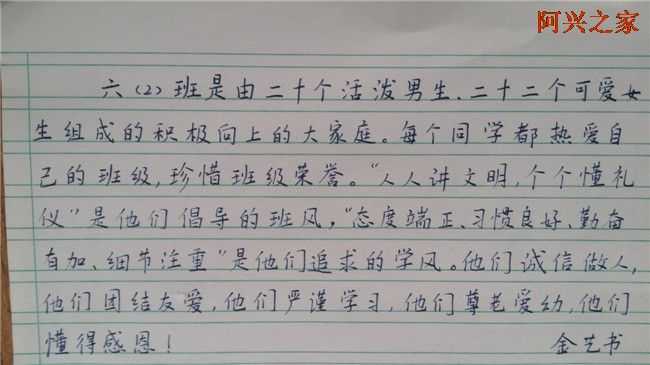 阿兴之家
六(2)班是由二十个活泼男生、二十二个可爱女
生组成的积极向上的大家庭。每个同学都热爱自
己的班级,珍惜班级荣誉。“人人讲文明,个个懂礼
仪”是他们倡导的班风,“态度端正、习惯良好、勤奋
有加、细节注重”是他们追求的学风。他们诚信做人,
他们团结友爱,他们严谨学习,他们尊老爱幼,他们
懂得感恩!
金艺书